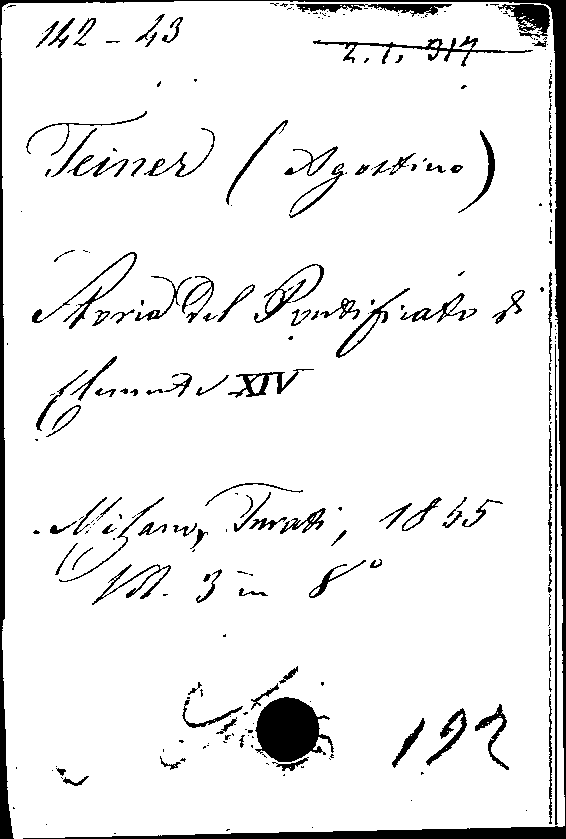 142-43
2. 1. 317
Teiner (Agostino)
Storia del Pontificato di
Clemente XIV
Milano, Turati, 1855
Vol. 3 in 8°
192